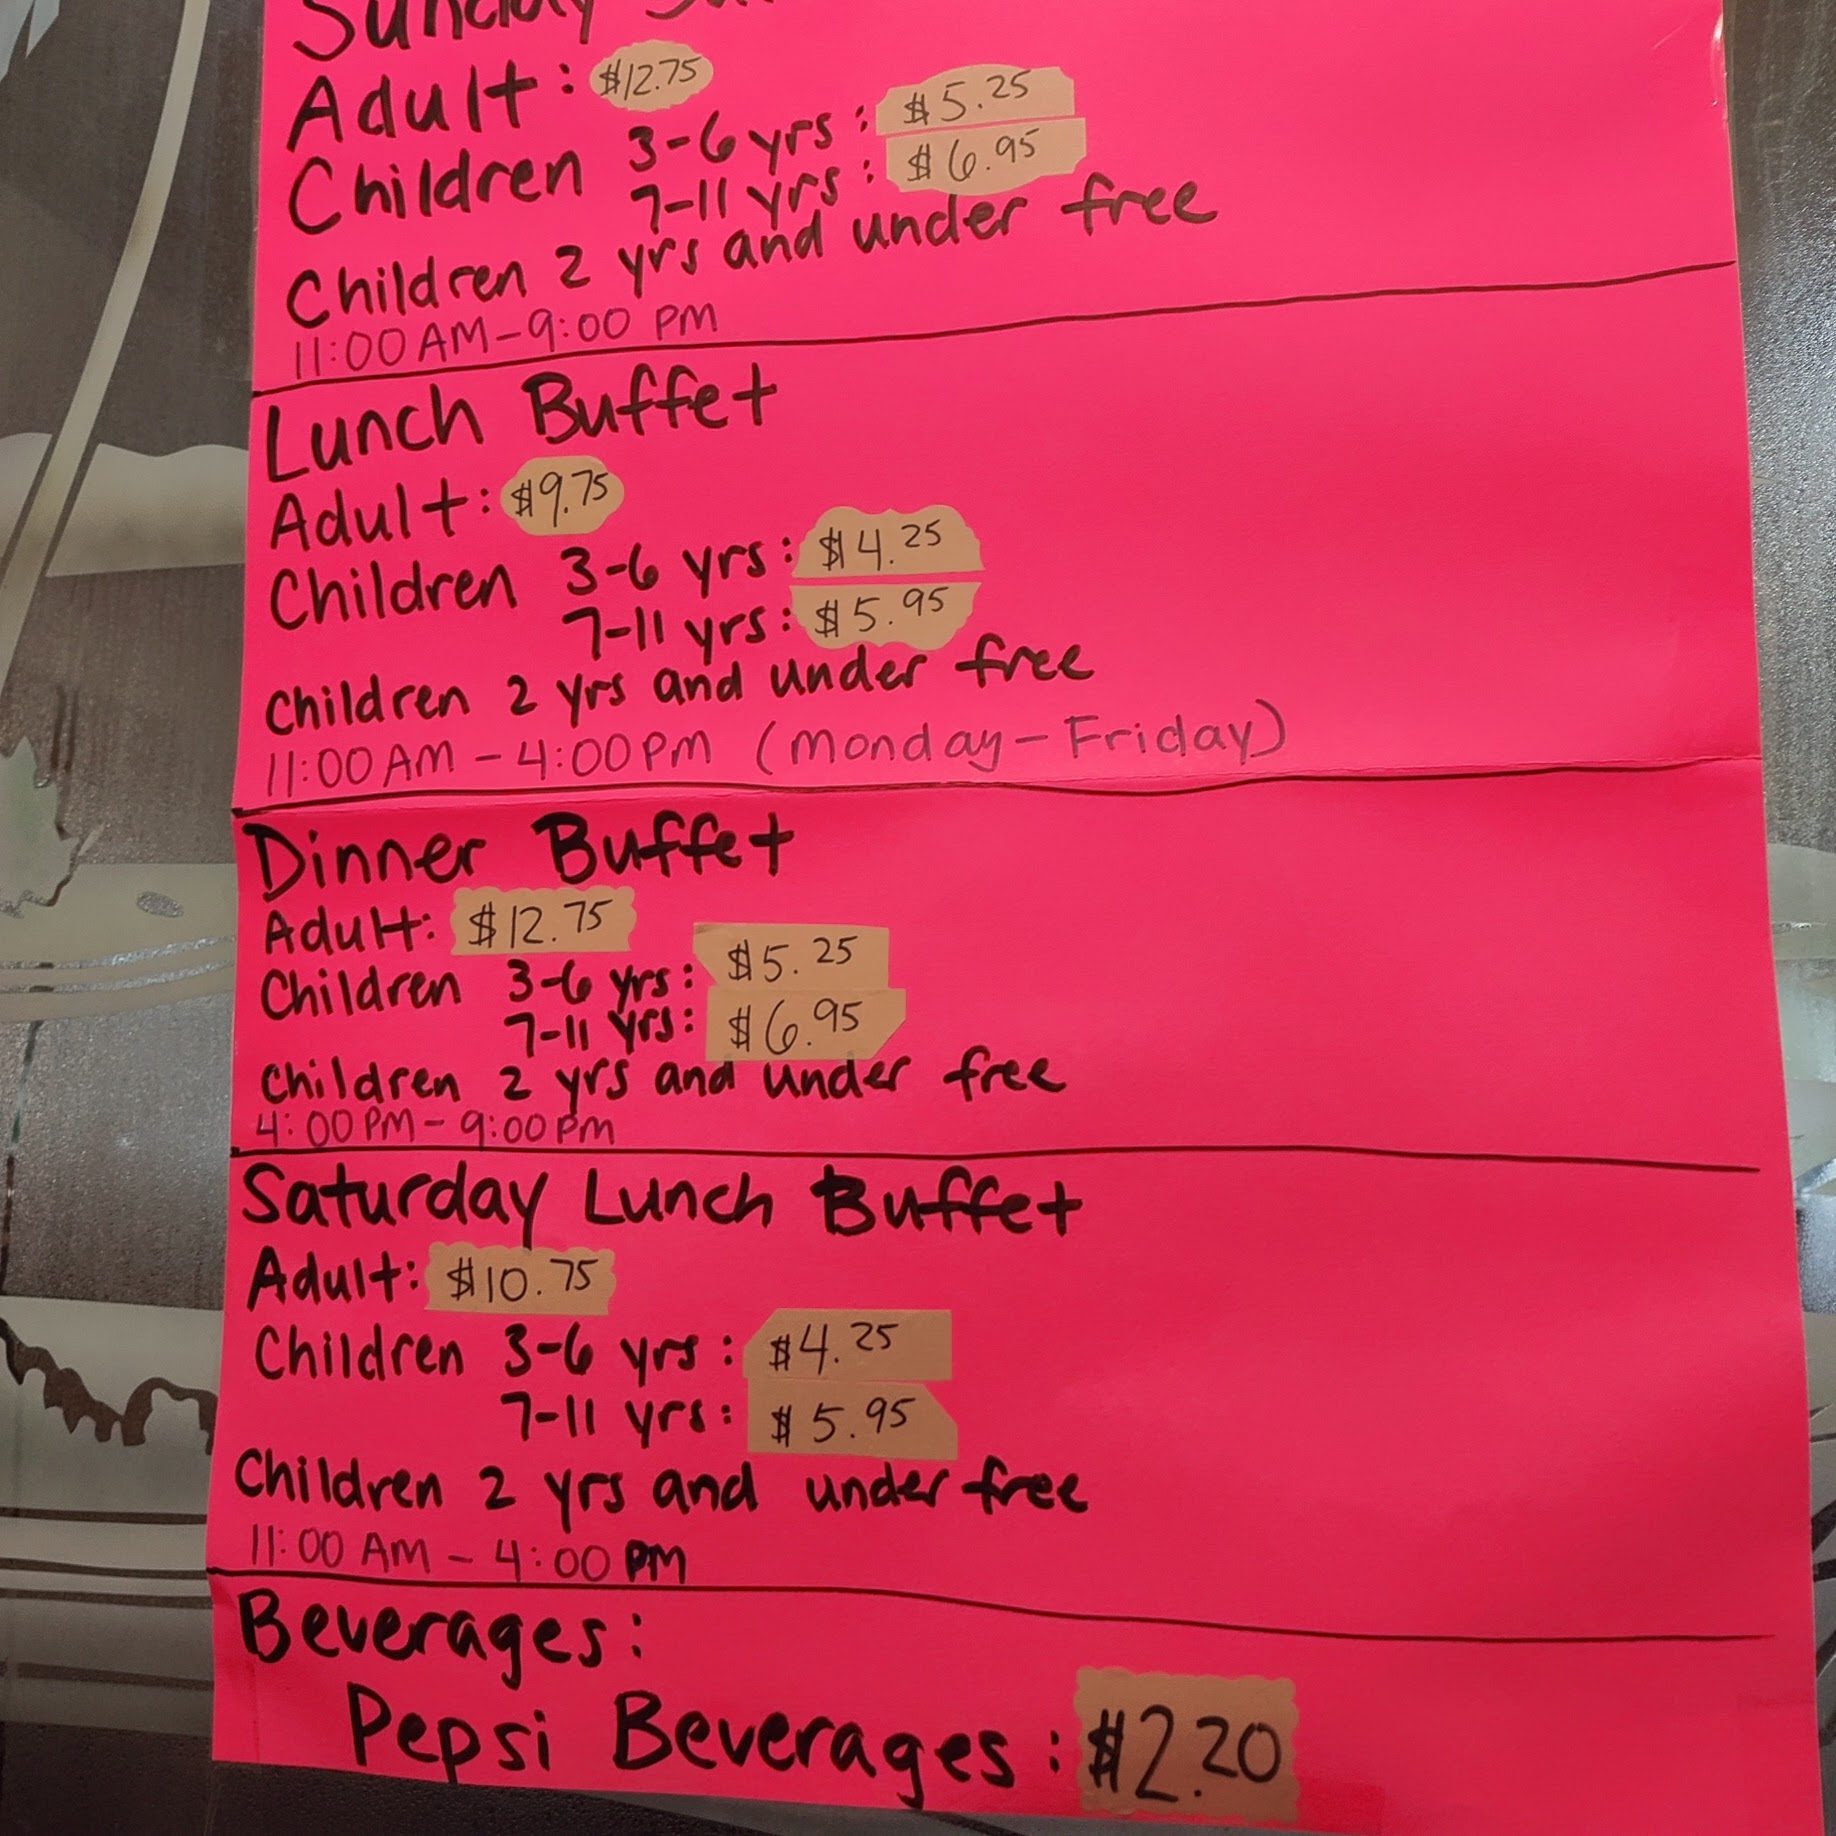 Sunday
Adult: $12.75
Children 3-6 yrs: $5.25
7-11 yrs: $6.95
Children 2 yrs and under free
11:00 AM - 9:00 PM
Lunch Buffet
Adult: $9.75
Children 3-6 yrs: $4.25
7-11 yrs: $5.95
Children 2 yrs and under free
11:00 AM - 4:00 PM (Monday - Friday)
Dinner Buffet
Adult: $12.75
Children 3-6 yrs: $5.25
7-11 yrs: $6.95
Children 2 yrs and under free
4:00 PM - 9:00 PM
Saturday Lunch Buffet
Adult: $10.75
Children 3-6 yrs: $4.25
7-11 yrs: $5.95
Children 2 yrs and under free
11:00 AM - 4:00 PM
Beverages:
Pepsi Beverages: $2.20